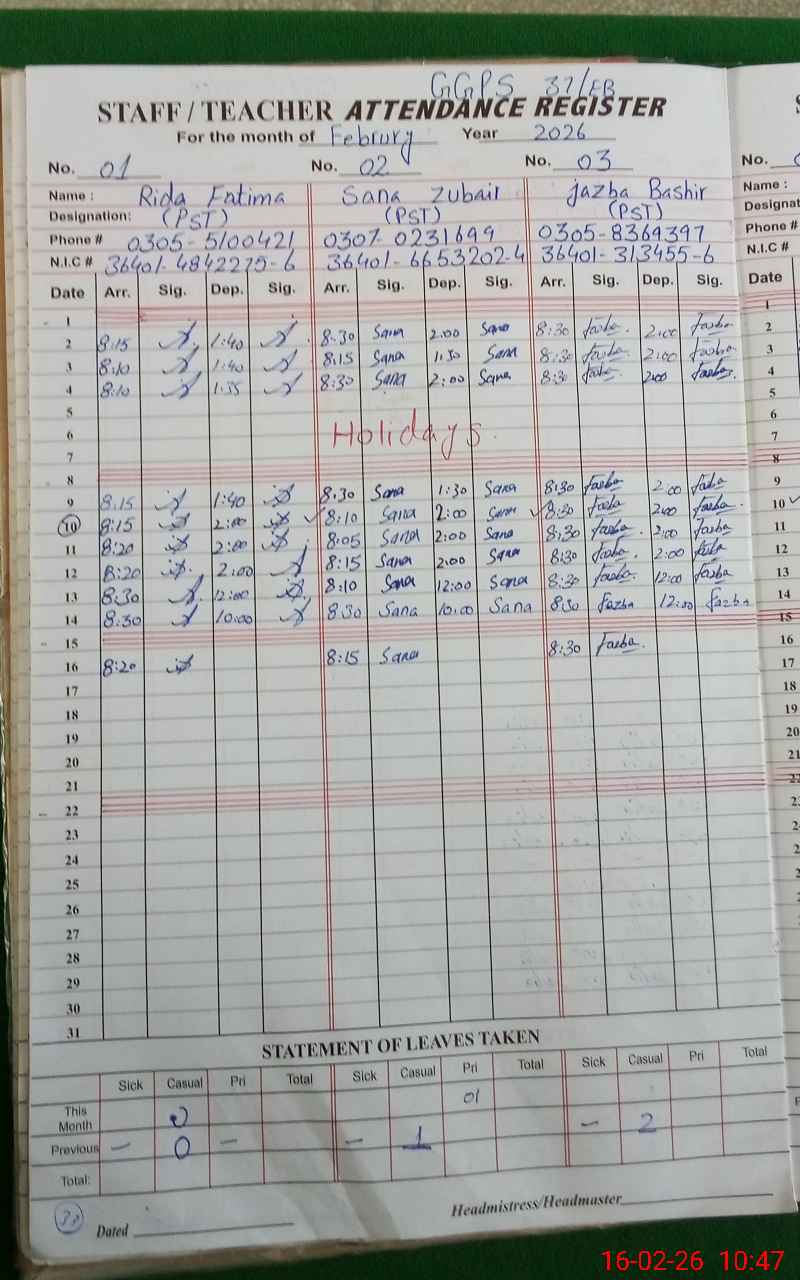 GGPS 37/EB
STAFF / TEACHER ATTENDANCE REGISTER
For the month of Februry Year 2026
No. 01 No. 02 No. 03 No.
Name : Rida Fatima Sana Zubair Jazba Bashir Name :
Designation: (PST) (PST) (PST) Designat
Phone # 0305-5100421 0307-0231699 0305-8369397 Phone #
N.I.C # 36401-4842275-6 36401-6653202-4 36401-313455-6 N.I.C #
Date Arr. Sig. Dep. Sig. Arr. Sig. Dep. Sig. Arr. Sig. Dep. Sig. Date
1 1
2 8:15 1:40 8:30 Sana 2:00 Sana 8:30 2:00 2
3 8:10 1:40 8:15 Sana 1:30 Sana 8:30 2:00 3
4 8:10 1:35 8:30 Sana 2:00 Sana 8:30 2:00 4
5 5
6 Holidays. 6
7 7
8 8
9 8:15 1:40 8:30 Sana 1:30 Sana 8:30 2:00 9
10 8:15 2:00 8:10 Sana 2:00 Sana 8:30 2:00 10
11 8:20 2:00 8:05 Sana 2:00 Sana 8:30 2:00 11
12 8:20 2:00 8:15 Sana 2:00 Sana 8:30 2:00 12
13 8:30 12:00 8:10 Sana 12:00 Sana 8:30 12:00 13
14 8:30 10:00 8:30 Sana 10:00 Sana 8:30 Fazba 12:00 Fazba 14
15 15
16 8:20 8:15 Sana 8:30 16
17 17
18 18
19 19
20 20
21 21
22 22
23
24
25
26
27
28
29
30
31
STATEMENT OF LEAVES TAKEN
Sick Casual Pri Total Sick Casual Pri Total Sick Casual Pri Total
This Month 01 - 2
Previous - 0 - - 1
Total:
Dated Headmistress/Headmaster
16-02-26 10:47